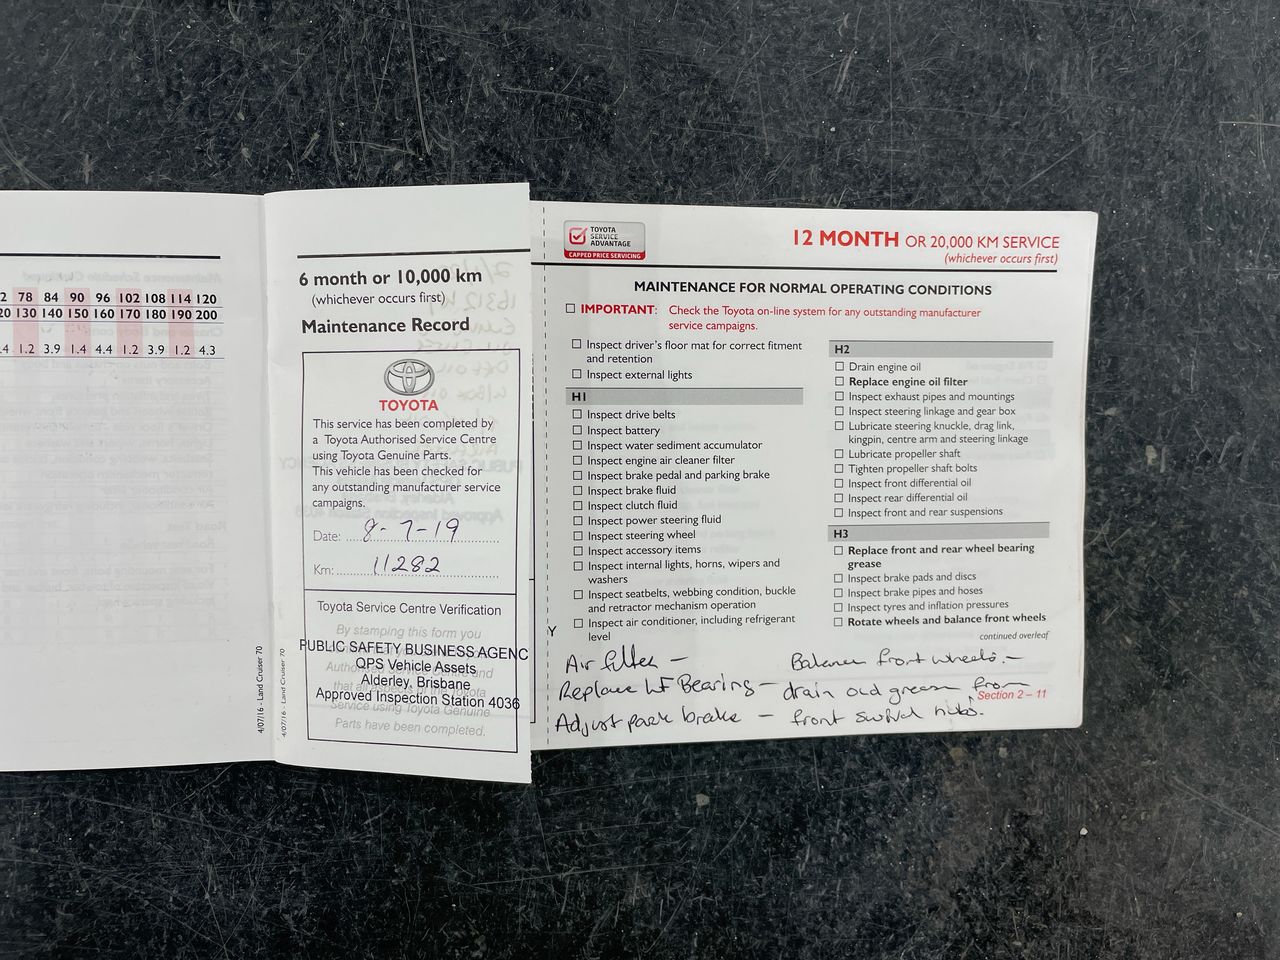 2 78 84 90 96 102 108 114 120
20 130 140 150 160 170 180 190 200
.4 1.2 3.9 1.4 4.4 1.2 3.9 1.2 4.3
4/07/16 - Land Cruiser 70
4/07/16 - Land Cruiser 70
6 month or 10,000 km
(whichever occurs first)
Maintenance Record
TOYOTA
This service has been completed by
a Toyota Authorised Service Centre
using Toyota Genuine Parts.
This vehicle has been checked for
any outstanding manufacturer service
campaigns.
Date: 8-7-19
Km: 11282
Toyota Service Centre Verification
By stamping this form you
PUBLIC SAFETY BUSINESS AGENC
Y
QPS Vehicle Assets
Alderley, Brisbane
Approved Inspection Station 4036
Service using Toyota Genuine
Parts have been completed.
TOYOTA
SERVICE
ADVANTAGE
CAPPED PRICE SERVICING
12 MONTH OR 20,000 KM SERVICE
(whichever occurs first)
MAINTENANCE FOR NORMAL OPERATING CONDITIONS
IMPORTANT: Check the Toyota on-line system for any outstanding manufacturer
service campaigns.
Inspect driver's floor mat for correct fitment
and retention
Inspect external lights
H1
Inspect drive belts
Inspect battery
Inspect water sediment accumulator
Inspect engine air cleaner filter
Inspect brake pedal and parking brake
Inspect brake fluid
Inspect clutch fluid
Inspect power steering fluid
Inspect steering wheel
Inspect accessory items
Inspect internal lights, horns, wipers and
washers
Inspect seatbelts, webbing condition, buckle
and retractor mechanism operation
Inspect air conditioner, including refrigerant
level
H2
Drain engine oil
Replace engine oil filter
Inspect exhaust pipes and mountings
Inspect steering linkage and gear box
Lubricate steering knuckle, drag link,
kingpin, centre arm and steering linkage
Lubricate propeller shaft
Tighten propeller shaft bolts
Inspect front differential oil
Inspect rear differential oil
Inspect front and rear suspensions
H3
Replace front and rear wheel bearing
grease
Inspect brake pads and discs
Inspect brake pipes and hoses
Inspect tyres and inflation pressures
Rotate wheels and balance front wheels
continued overleaf
Air filter -
Replace LF Bearing -
Adjust park brake -
Balance front wheels. -
drain old grease from
front swivel hubs.
Section 2 – 11